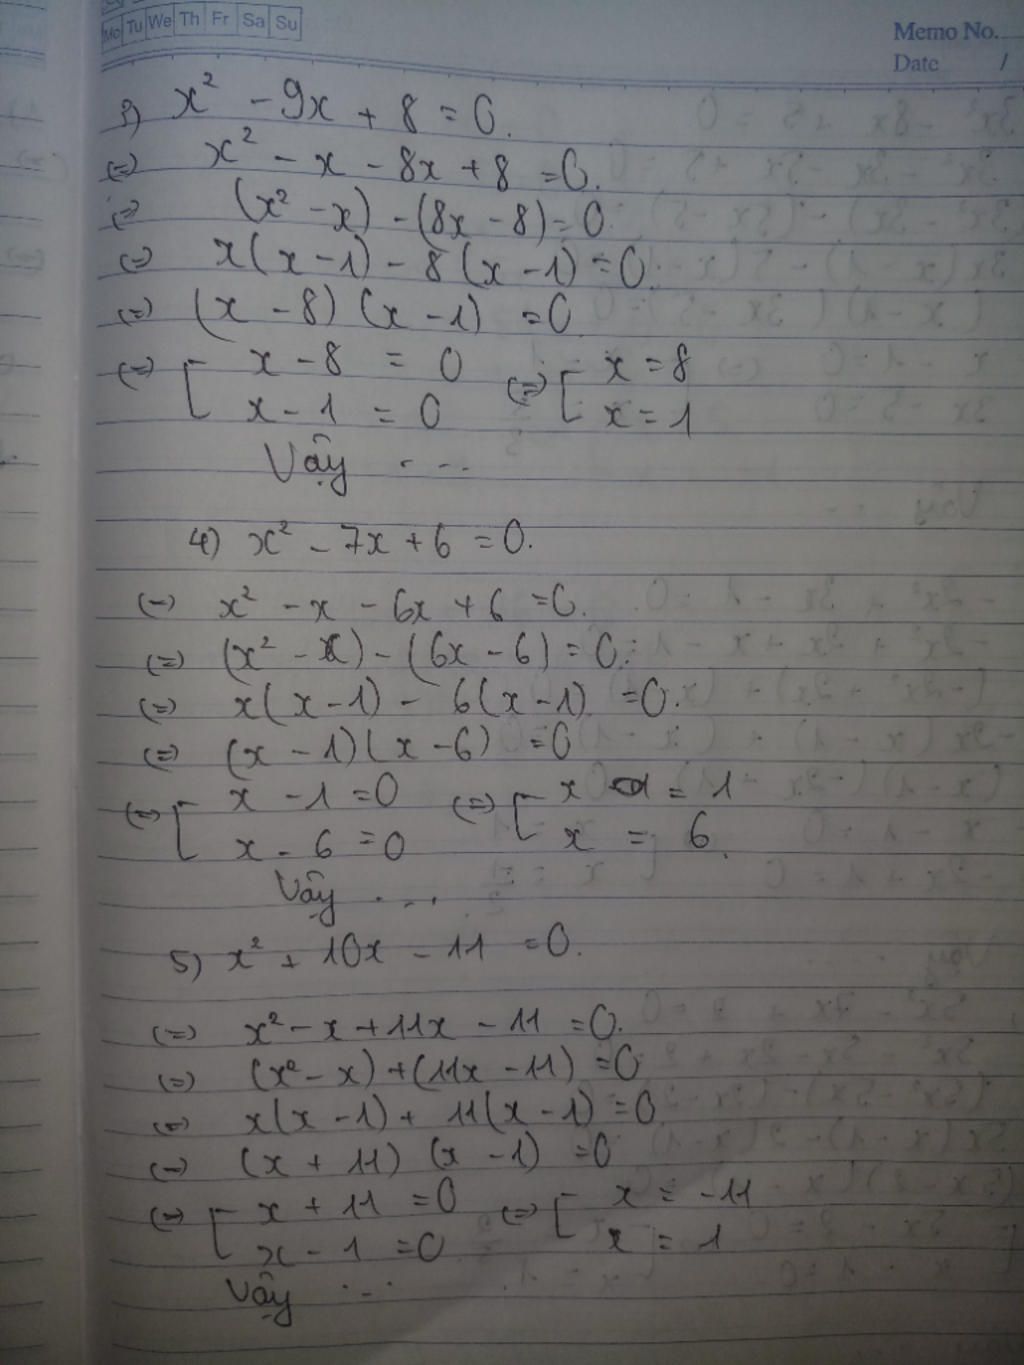 Mo Tu We Th Fr Sa Su
Memo No.
Date /
3) x² - 9x + 8 = 0.
(=) x² - x - 8x + 8 = 0.
(=) (x² - x) - (8x - 8) = 0.
(=) x(x - 1) - 8(x - 1) = 0.
(=) (x - 8) (x - 1) = 0
(=) [ x - 8 = 0 (=) [ x = 8
x - 1 = 0 x = 1
Vậy ...
4) x² - 7x + 6 = 0.
(=) x² - x - 6x + 6 = 0.
(=) (x² - x) - (6x - 6) = 0.
(=) x(x - 1) - 6(x - 1) = 0.
(=) (x - 1)(x - 6) = 0
(=) [ x - 1 = 0 (=) [ x = 1
x - 6 = 0 x = 6.
Vậy ...
5) x² + 10x - 11 = 0.
(=) x² - x + 11x - 11 = 0.
(=) (x² - x) + (11x - 11) = 0
(=) x(x - 1) + 11(x - 1) = 0
(=) (x + 11) (x - 1) = 0
(=) [ x + 11 = 0 (=) [ x = -11
x - 1 = 0 x = 1
Vậy ...